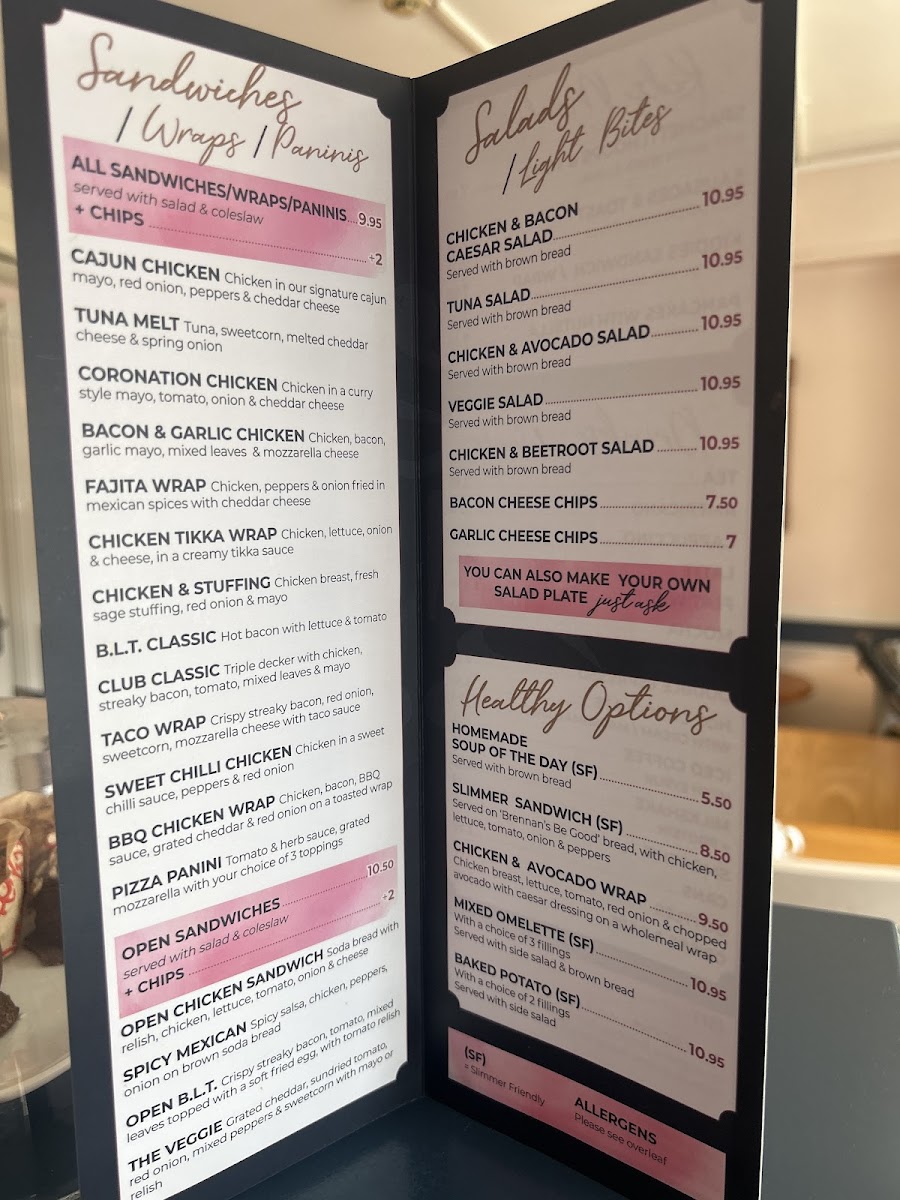 Sandwiches
/ Wraps / Paninis
ALL SANDWICHES/WRAPS/PANINIS...9.95
served with salad & coleslaw
+ CHIPS ........ +2
CAJUN CHICKEN Chicken in our signature cajun
mayo, red onion, peppers & cheddar cheese
TUNA MELT Tuna, sweetcorn, melted cheddar
cheese & spring onion
CORONATION CHICKEN Chicken in a curry
style mayo, tomato, onion & cheddar cheese
BACON & GARLIC CHICKEN Chicken, bacon,
garlic mayo, mixed leaves & mozzarella cheese
FAJITA WRAP Chicken, peppers & onion fried in
mexican spices with cheddar cheese
CHICKEN TIKKA WRAP Chicken, lettuce, onion
& cheese, in a creamy tikka sauce
CHICKEN & STUFFING Chicken breast, fresh
sage stuffing, red onion & mayo
B.L.T. CLASSIC Hot bacon with lettuce & tomato
CLUB CLASSIC Triple decker with chicken,
streaky bacon, tomato, mixed leaves & mayo
TACO WRAP Crispy streaky bacon, red onion,
sweetcorn, mozzarella cheese with taco sauce
SWEET CHILLI CHICKEN Chicken in a sweet
chilli sauce, peppers & red onion
BBQ CHICKEN WRAP Chicken, bacon, BBQ
sauce, grated cheddar & red onion on a toasted wrap
PIZZA PANINI Tomato & herb sauce, grated
mozzarella with your choice of 3 toppings
OPEN SANDWICHES ........ 10.50
served with salad & coleslaw
+ CHIPS ........ +2
OPEN CHICKEN SANDWICH Soda bread with
relish, chicken, lettuce, tomato, onion & cheese
SPICY MEXICAN Spicy salsa, chicken, peppers,
onion on brown soda bread
OPEN B.L.T. Crispy streaky bacon, tomato, mixed
leaves topped with a soft fried egg, with tomato relish
THE VEGGIE Grated cheddar, sundried tomato,
red onion, mixed peppers & sweetcorn with mayo or
relish
Salads
/ Light Bites
CHICKEN & BACON
CAESAR SALAD........ 10.95
Served with brown bread
TUNA SALAD........ 10.95
Served with brown bread
CHICKEN & AVOCADO SALAD........ 10.95
Served with brown bread
VEGGIE SALAD ........ 10.95
Served with brown bread
CHICKEN & BEETROOT SALAD ........ 10.95
Served with brown bread
BACON CHEESE CHIPS ........ 7.50
GARLIC CHEESE CHIPS ........ 7
YOU CAN ALSO MAKE YOUR OWN
SALAD PLATE just ask
Healthy Options
HOMEMADE
SOUP OF THE DAY (SF)........ 5.50
Served with brown bread
SLIMMER SANDWICH (SF) ........ 8.50
Served on 'Brennan's Be Good' bread, with chicken,
lettuce, tomato, onion & peppers
CHICKEN & AVOCADO WRAP ........ 9.50
Chicken breast, lettuce, tomato, red onion & chopped
avocado with caesar dressing on a wholemeal wrap
MIXED OMELETTE (SF)........ 10.95
With a choice of 3 fillings
Served with side salad & brown bread
BAKED POTATO (SF)........ 10.95
With a choice of 2 fillings
Served with side salad
(SF)
= Slimmer Friendly
ALLERGENS
Please see overleaf